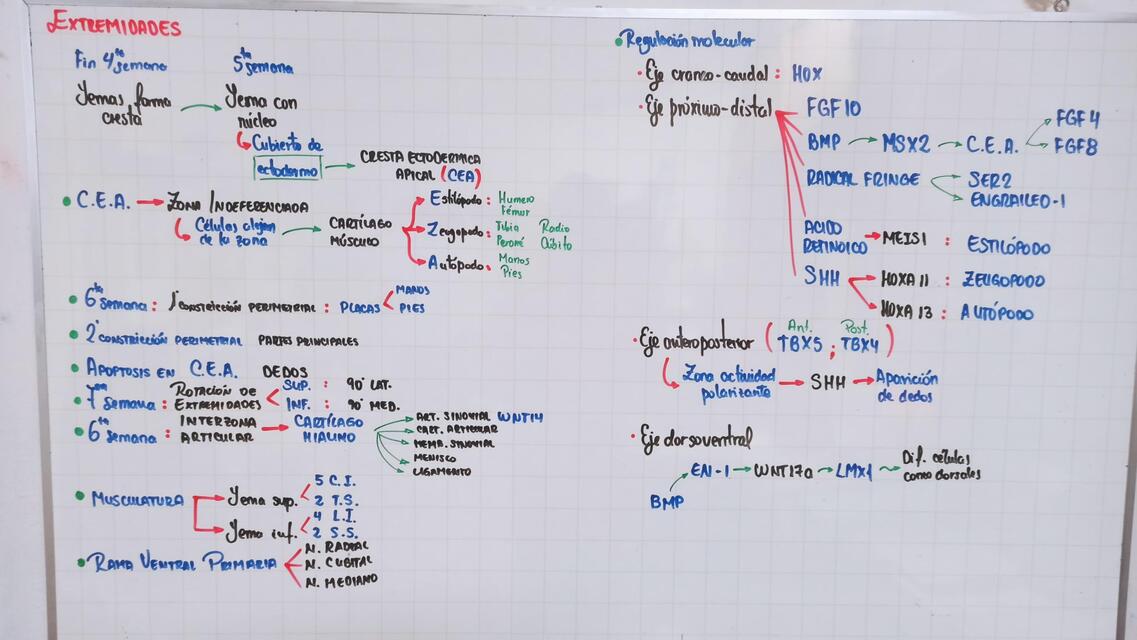 EXTREMIDADES
Fin 4ta semana
5ta semana
Yemas forma cresta → Yema con núcleo
Cubierto de ectodermo → CRESTA ECTODERMICA APICAL (CEA)
• C.E.A. → ZONA INDEFERENCIADA
Células alejan de la zona → CARTÍLAGO MÚSCULO
Estilópodo: Humero Fémur
Zeugopodo: Tibia Radio
Peroné Cúbito
Autópodo: Manos Pies
• 6ta semana: 1° CONSTRICCIÓN PERIMETRIAL: PLACAS < MANOS
PIES
• 2° CONSTRICCIÓN PERIMETRIAL PARTES PRINCIPALES
• APOPTOSIS EN C.E.A. DEDOS
• 7ma semana: ROTACIÓN DE EXTREMIDADES < SUP. : 90° LAT.
INF. : 90° MED.
• 6ta semana: INTERZONA ARTICULAR → CARTÍLAGO HIALINO
ART. SINOVIAL WNT14
CART. ARTICULAR
MEMB. SINOVIAL
MENISCO
LIGAMENTO
• MUSCULATURA
Yema sup. < 5 C.I.
2 T.S.
Yema inf. < 4 L.I.
2 S.S.
• RAMA VENTRAL PRIMARIA
N. RADIAL
N. CUBITAL
N. MEDIANO
• Regulación molecular
• Eje craneo-caudal : HOX
• Eje próximo-distal
FGF10
BMP → MSX2 → C.E.A.
FGF4
FGF8
RADICAL FRINGE
SER2
ENGRAILED-1
ACIDO RETINOICO → MEIS1 : ESTILÓPODO
SHH
HOXA 11 : ZEUGOPODO
HOXA 13 : AUTÓPODO
• Eje anteroposterior (Ant. TBX5 ; Post. TBX4)
Zona actividad polarizante → SHH → Aparición de dedos
• Eje dorsoventral
BMP
EN-1 → WNT17a → LMX1 → Dif. células como dorsales